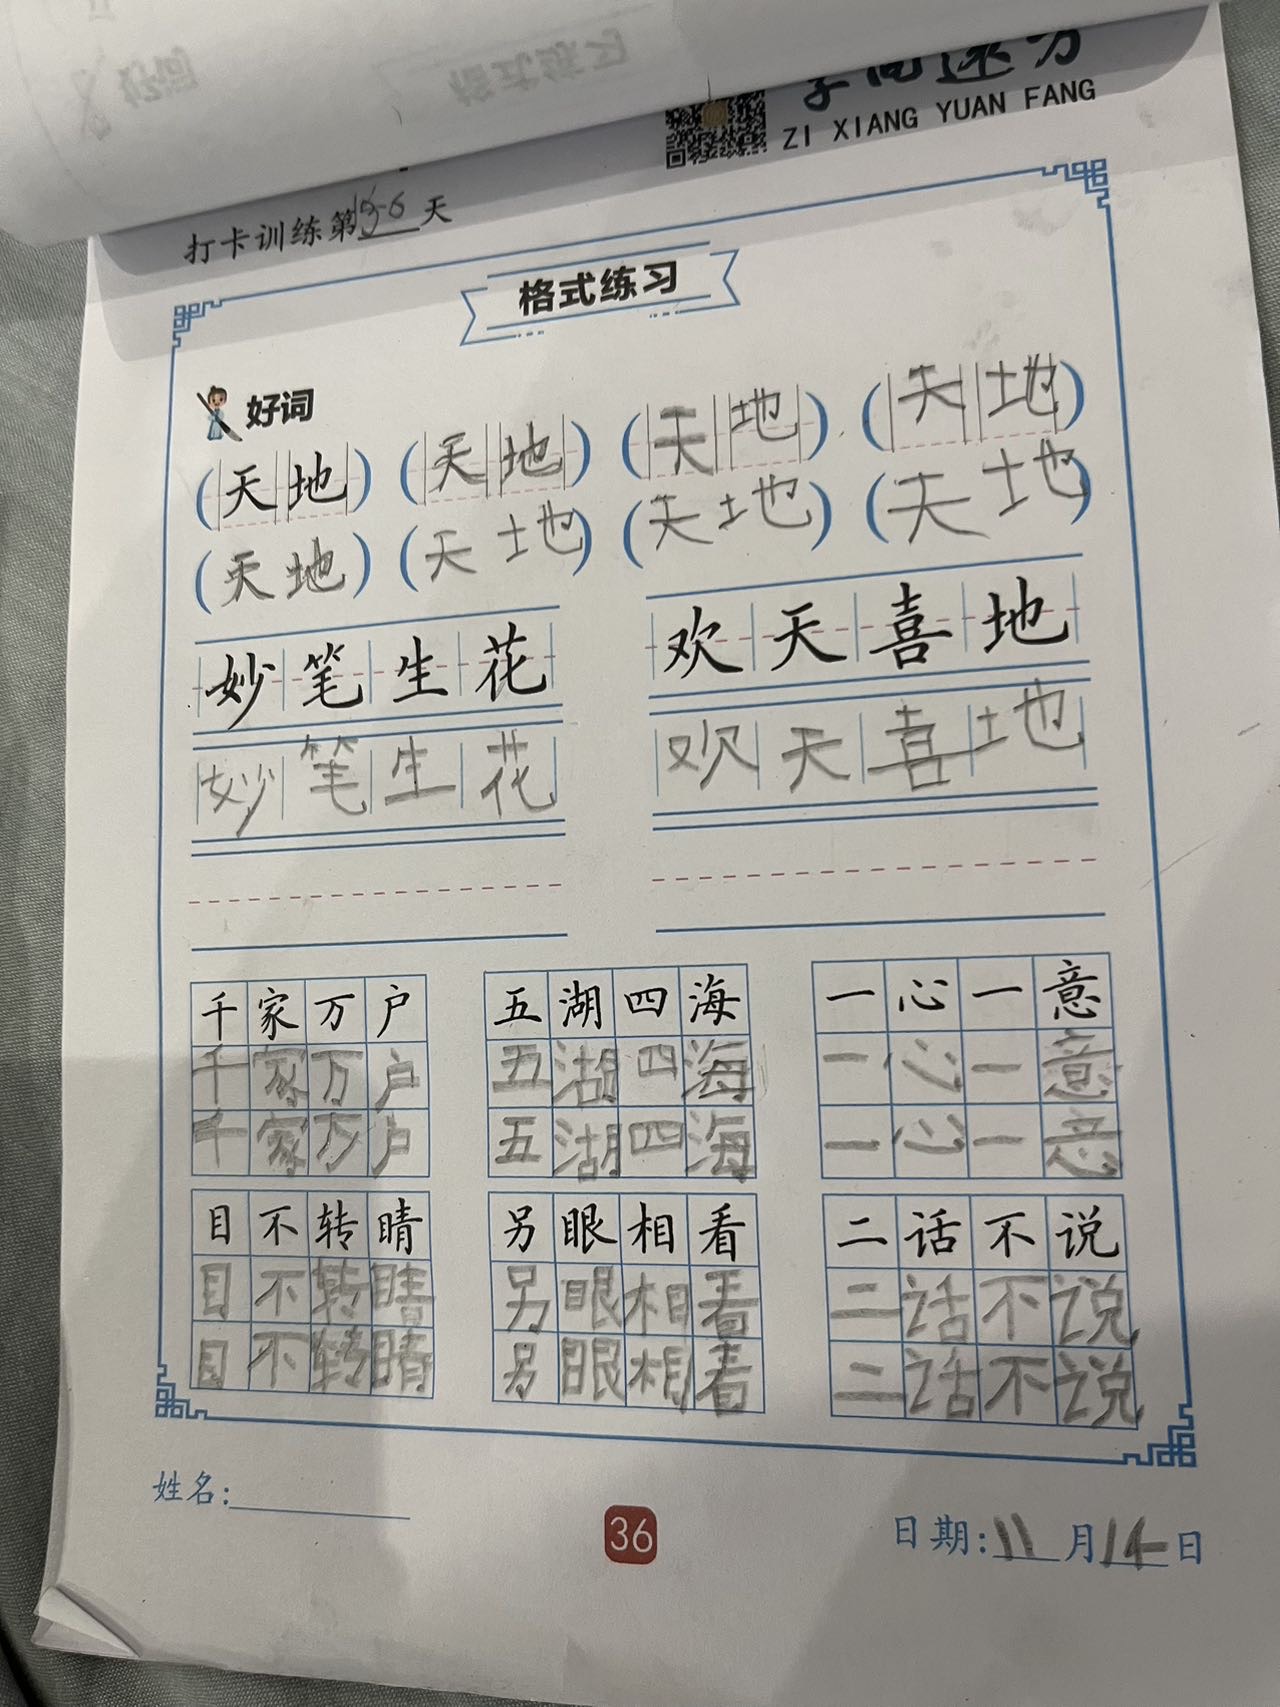 字向远方
ZI XIANG YUAN FANG
打卡训练第 天
格式练习
好词
(天地) (天地) (天地) (天地)
(天地) (天地) (天地) (天地)
妙笔生花 欢天喜地
妙笔生花 欢天喜地
千家万户 五湖四海 一心一意
千家万户 五湖四海 一心一意
千家万户 五湖四海 一心一意
目不转睛 另眼相看 二话不说
目不转睛 另眼相看 二话不说
目不转睛 另眼相看 二话不说
姓名:
36
日期:11月14日